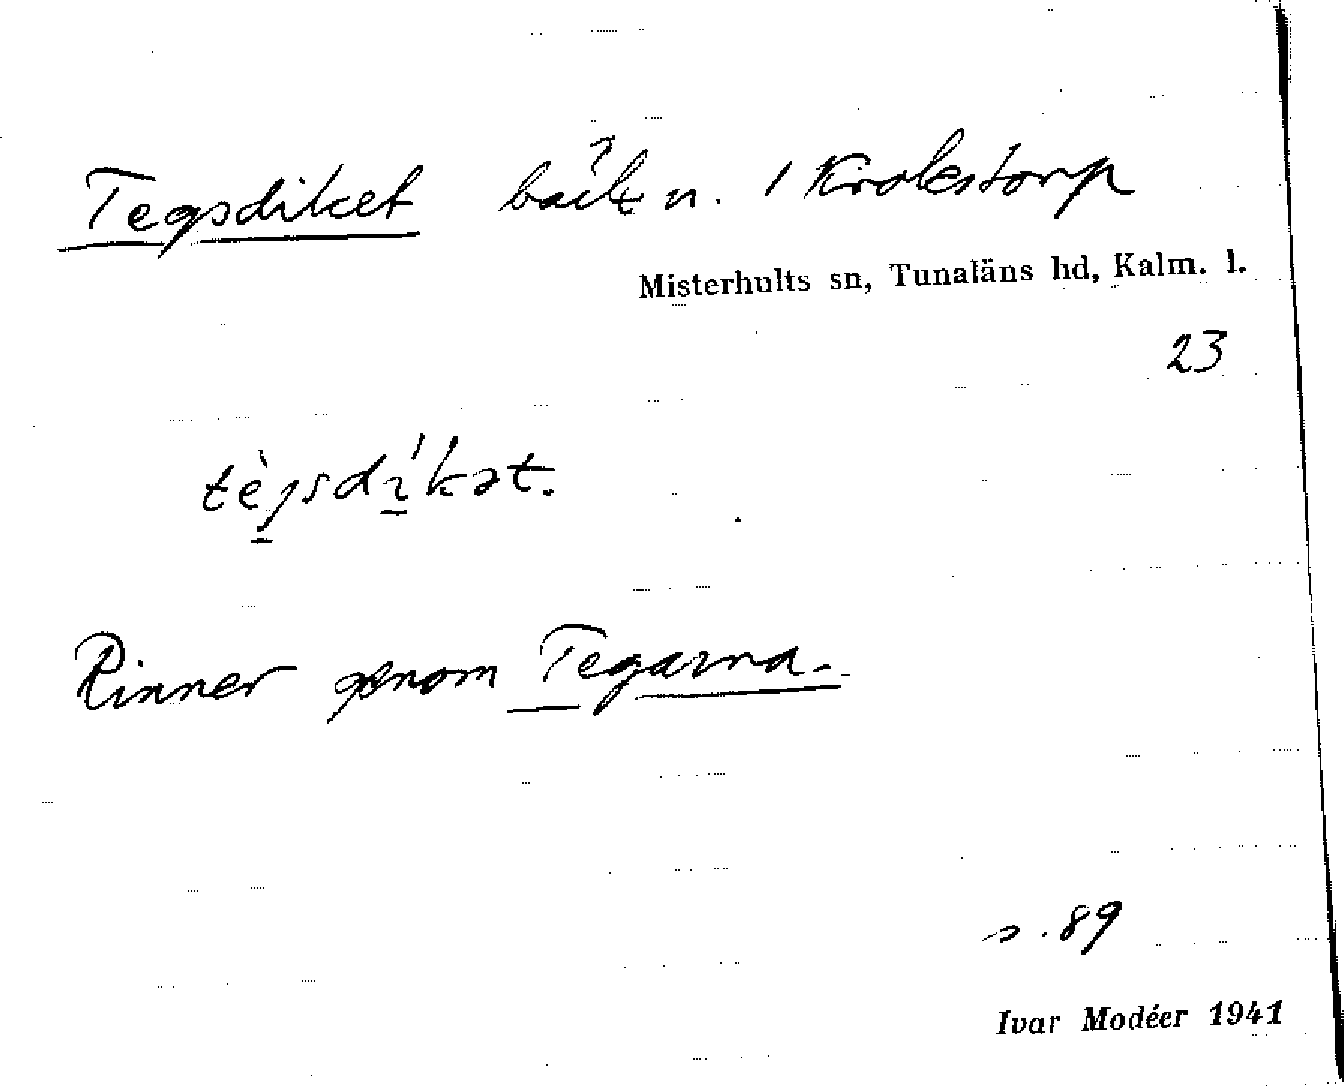 Tegsdiket bäck n. i Krokstorp
Misterhults sn, Tunaläns hd, Kalm. l.
23
tègsdíkət.
Rinner genom Tegarna.
s. 89
Ivar Modéer 1941